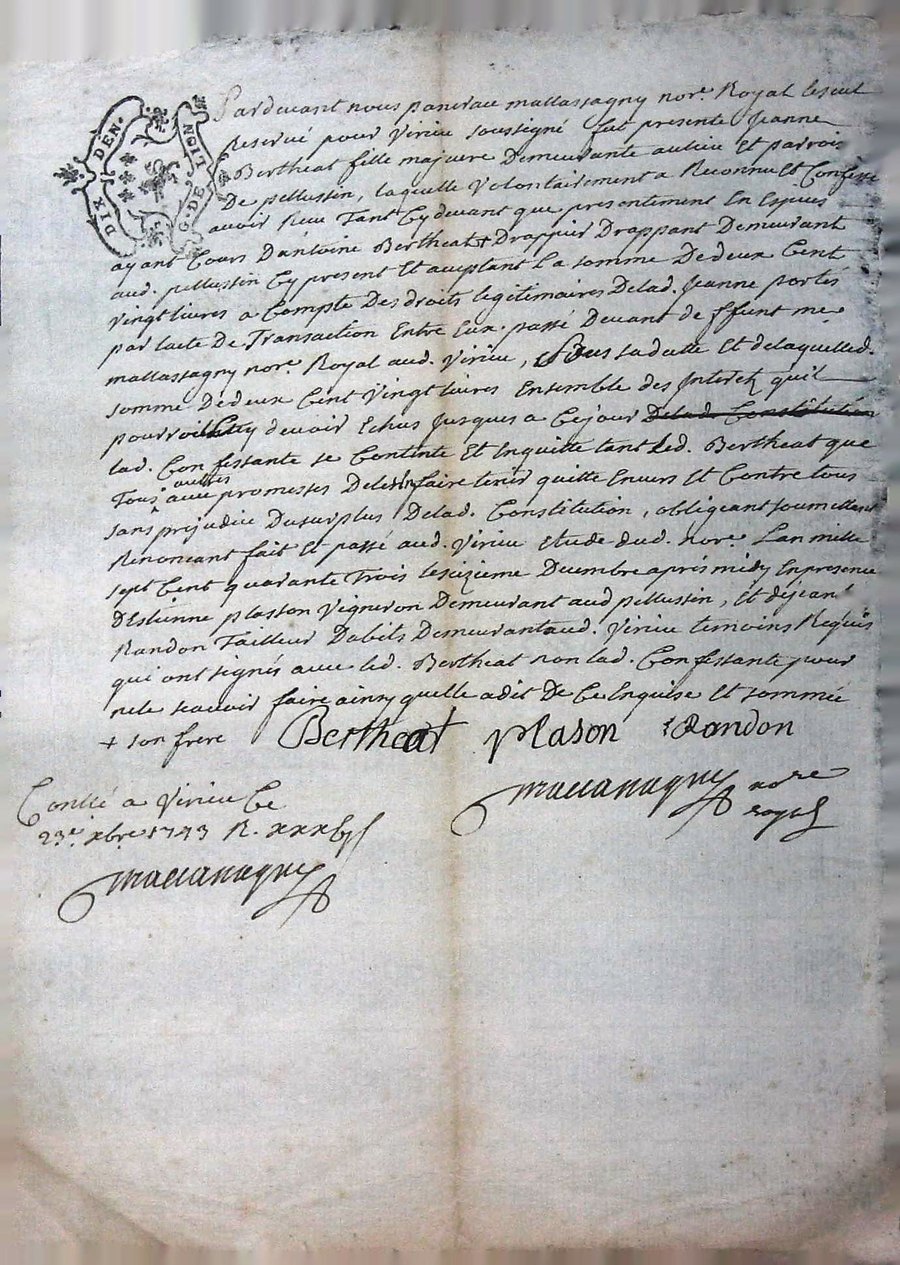 DIX DEN.
G. DE LION
Pardevant nous pancrace mallassagny nore. Royal le seul
Reservé pour Virieu soussigné fut presente Jeanne
Bertheat fille majeure Demeurante au lieu Et parroisse
De pellussin, laquelle Volontairement a Reconnu Et Confessé
avoir Reçu Tant Cy devant que presentement En Especes
ayant Cours D'antoine Bertheat + Drappier Drappant Demeurant
aud. pellussin Cy present Et acceptant La somme De deux Cent
Vingt livres a Compte Des droits legitimaires De lad. Jeanne portés
par l'acte De Transaction Entre Eux passé Devant de ffunt me.
mallassagny nore. Royal aud. Virieu, sous sa datte Et de laquelle d.
somme De deux Cent Vingt livres Ensemble des Interetz quil
pourroit Cy devoir Echus Jusques a Ce jour De lad. Constitution
lad. Confessante se Contente Et En quitte tant Led. Bertheat que
Tous autres avec promesses De l'en faire tenir quitte Envers Et Contre tous
sans prejudice Du surplus De lad. Constitution, obligeant soumettant
Renonceant fait Et passé aud. Virieu Etude dud. nore. L'an mille
sept Cent quarante Trois le seizieme Decembre après midy En presence
D'Estienne plasson Vigneron Demeurant aud pellussin, Et de jean
Randon Tailleur D'abits Demeurant aud. Virieu temoins Requis
qui ont signés avec led. Bertheat non lad. Confessante pour
ne le scavoir faire ainsy quelle a dit De Ce Enquise Et sommée
+ son frere Bertheat plason Randon
mallassagny nore
royal
Contlé a Virieu Ce
23e. xbre 1743 R.
mallassagny